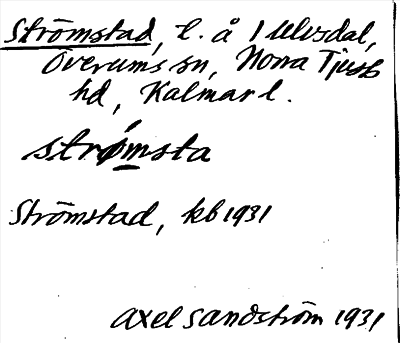 Strömstad, l. å 1 Ulvsdal,
Överums sn, Norra Tjusts
hd, Kalmar l.
strö́msta
Strömstad, kb 1931
Axel Sandström 1931